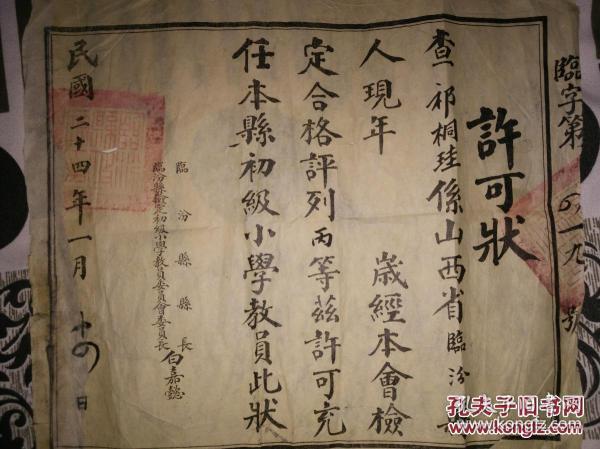 臨字第 四一九 號
許可狀
查祁桐珪係山西省臨汾縣
人現年 歲經本會檢
定合格評列丙等茲許可充
任本縣初級小學教員此狀
臨汾縣縣長
臨汾縣檢定初級小學教員委員會委員長 白嘉懿
民國二十四年一月十四日
孔夫子旧书网
www.kongfz.com